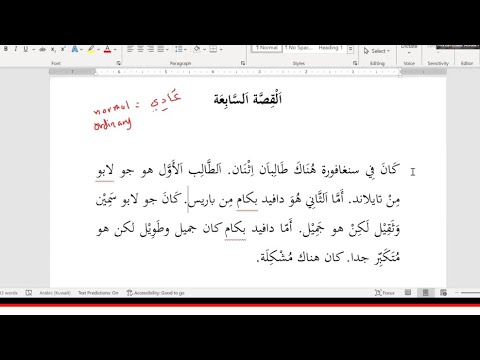 Normal
No Spac...
Heading 1
Editing
Creativity
Add-ins
اَلْقِصَّة اَلسَّابِعَة
normal : عَادِي
ordinary
كَانَ فِي سنغافورة هُنَاكَ طَالِبَان اِثْنَان. اَلطَّالِب الأَوَّل هو جو لابو
مِنْ تايلاند. أَمَّا اَلثَّانِي هُوَ دافيد بكام مِن باريس. كَانَ جو لابو سَمِيْن
وَثَقِيْل لَكِنْ هو جَمِيْل. أَمّا دافيد بكام كان جميل وطَوِيْل لكن هو
مُتَكَبِّر جدا. كان هناك مُشْكِلَة.
words Arabic (Kuwait) Text Predictions: On Accessibility: Good to go Focus